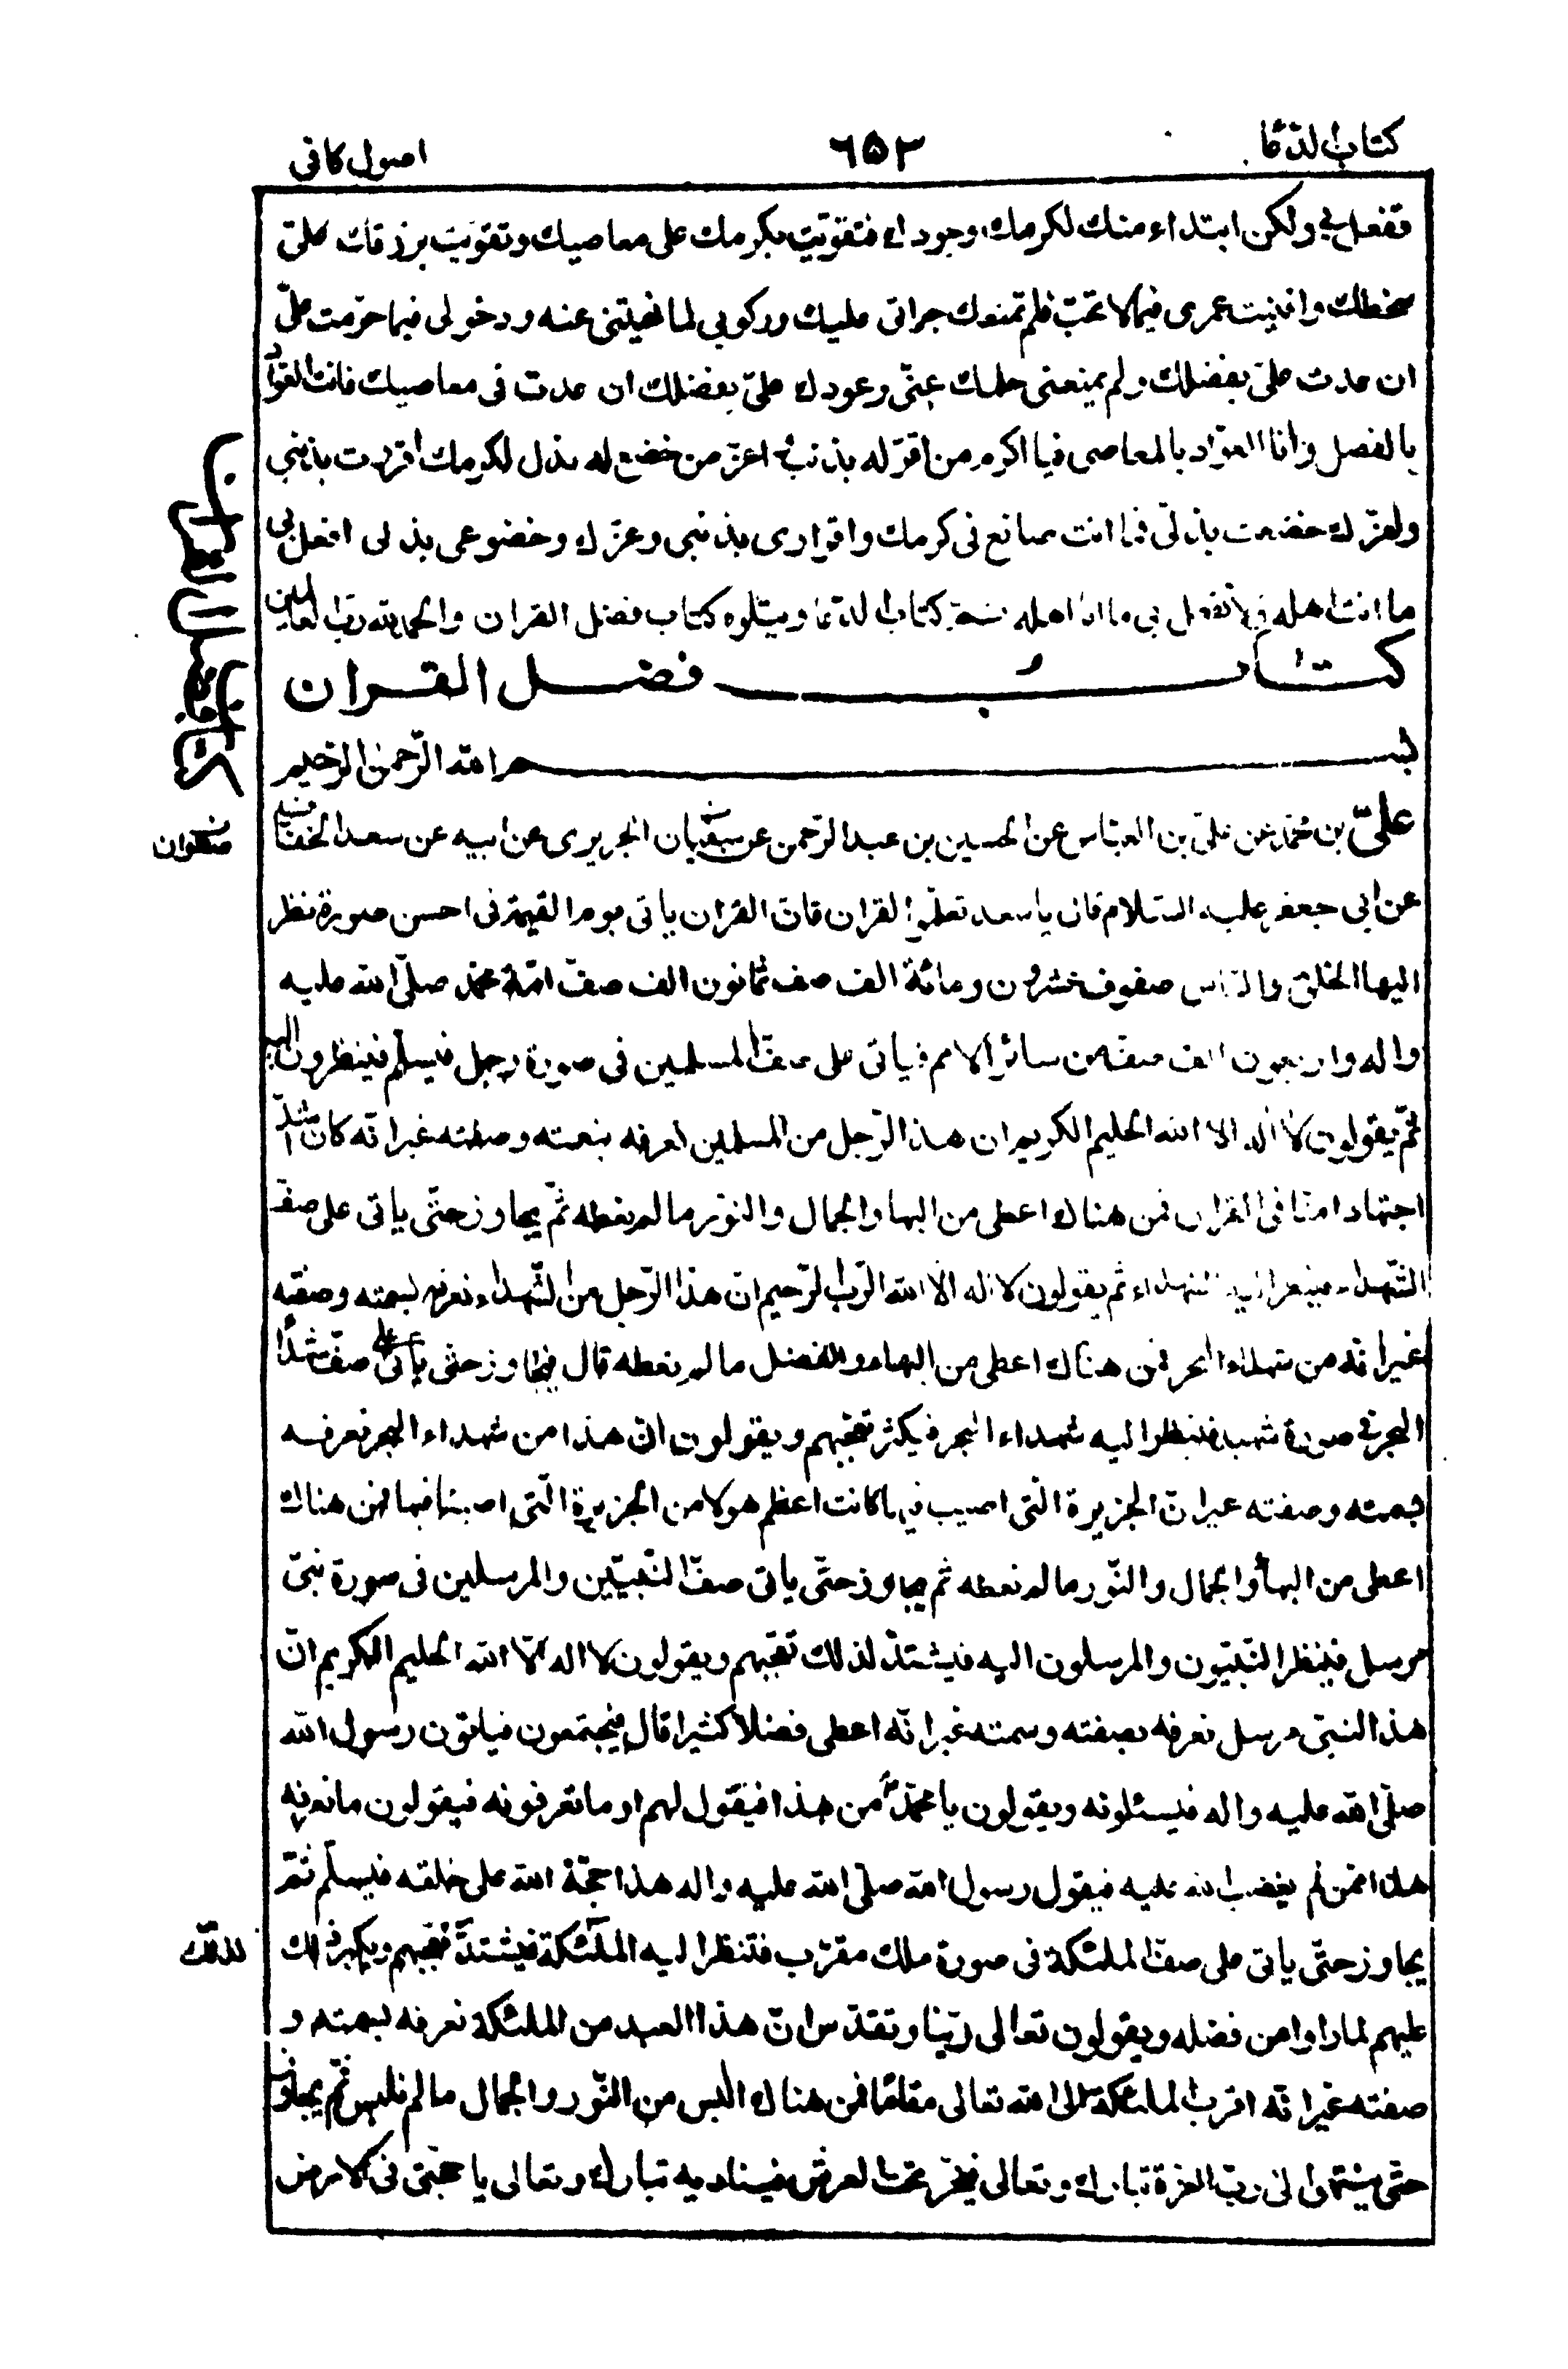 كتاب الدعا
٦٥٣
اصول كافى
تفعل بي ولكن ابتداء منك لكرمك وجودك فتقويت بكرمك على معاصيك وتقويت برزقك على
سخطك وافنيت عمرى فيما لا تحب فلم تمنعك جراتى عليك وركوبى لما نهيتنى عنه ودخولى فيما حرّمت علىّ
ان عدت علىّ بفضلك ولم يمنعنى حلمك عنّى وعودك علىّ بفضلك ان عدت فى معاصيك فانت العوّاد
بالفضل وانا العوّاد بالمعاصى فيا اكرم من اقرّ له بذنب واعزّ من خضع له بذل لكرمك اقررت بذنبى
ولعزّك خضعت بذلّى فما انت صانع فى كرمك واقرارى بذنبى وعزّك وخضوعى بذلى افعل بى
ما انت اهله ولا تفعل بى ما انا اهله كتاب الدعا ويتلوه كتاب فضل القران والحمد لله ربّ العالمين
كتاب فضل القران
بسم الله الرّحمن الرّحيم
علىّ بن محمّد عن علىّ بن العبّاس عن الحسين بن عبد الرّحمن عن سفيان الجريرى عن ابيه عن سعد الخفّاف
عن ابى جعفر عليه السّلام قال يا سعد تعلّموا القران فانّ القران ياتى يوم القيمة فى احسن صورة نظر
اليها الخلق والنّاس صفوف عشرون ومائة الف صف ثمانون الف صفّ امّة محمّد صلّى الله عليه
واله واربعون الف صفّ من سائر الامم فياتى على صفّ المسلمين فى صورة رجل فيسلّم فينظرون اليه
ثمّ يقولون لا اله الا الله الحليم الكريم ان هذا الرّجل من المسلمين نعرفه بنعته وصفته غير انّه كان اشدّ
اجتهادا منّا فى القران فمن هناك اعطى من البهاء والجمال والنّور ما لم نعطه ثمّ يجاوز حتّى ياتى على صفّ
الشّهداء فينظر اليه الشهداء ثم يقولون لا اله الّا الله الرّب الرّحيم انّ هذا الرّجل من الشّهداء نعرفه بسمته وصفته
غير انّه من شهداء البحر فمن هناك اعطى من البهاء والفضل ما لم نعطه قال فيجاوز حتّى ياتى على صفّ شهداء
البحر فى صورة شهيد فينظر اليه شهداء البحر فيكثر تعجّبهم ويقولون انّ هذا من شهداء البحر نعرفه
بسمته وصفته غير انّ الجزيرة الّتى اصيب فيها كانت اعظم هولا من الجزيرة الّتى اصبنا فيها فمن هناك
اعطى من البهاء والجمال والنّور ما لم نعطه ثم يجاوز حتّى ياتى صفّ النّبيّين والمرسلين فى صورة نبىّ
مرسل فينظر النّبيّون والمرسلون اليه فيشتدّ لذلك تعجّبهم ويقولون لا اله الّا الله الحليم الكريم انّ
هذا النبىّ مرسل نعرفه بصفته وسمته غير انّه اعطى فضلا كثيرا قال فيجتمعون فياتون رسول الله
صلّى الله عليه واله فيسئلونه ويقولون يا محمّد من هذا فيقول لهم او ما تعرفونه فيقولون ما نعرفه
هذا ممّن لم يغضب الله عليه فيقول رسول الله صلّى الله عليه واله هذا حجّة الله على خلقه فيسلّم ثمّ
يجاوز حتّى ياتى على صفّ الملئكة فى صورة ملك مقرّب فتنظر اليه الملئكة فيشتدّ تعجّبهم ويكبر ذلك
عليهم لما راوا من فضله ويقولون تعالى ربّنا وتقدّس انّ هذا العبد من الملئكة نعرفه بسمته و
صفته غير انّه اقرب الملئكة الى الله تعالى مقاما فمن هناك البس من النّور والجمال ما لم نلبس ثمّ يجاوز
حتّى ينتهى الى ربّ العزة تبارك وتعالى فيخرّ تحت العرش فيناديه تبارك وتعالى يا حجّتى فى الارض
كتاب فضل القران